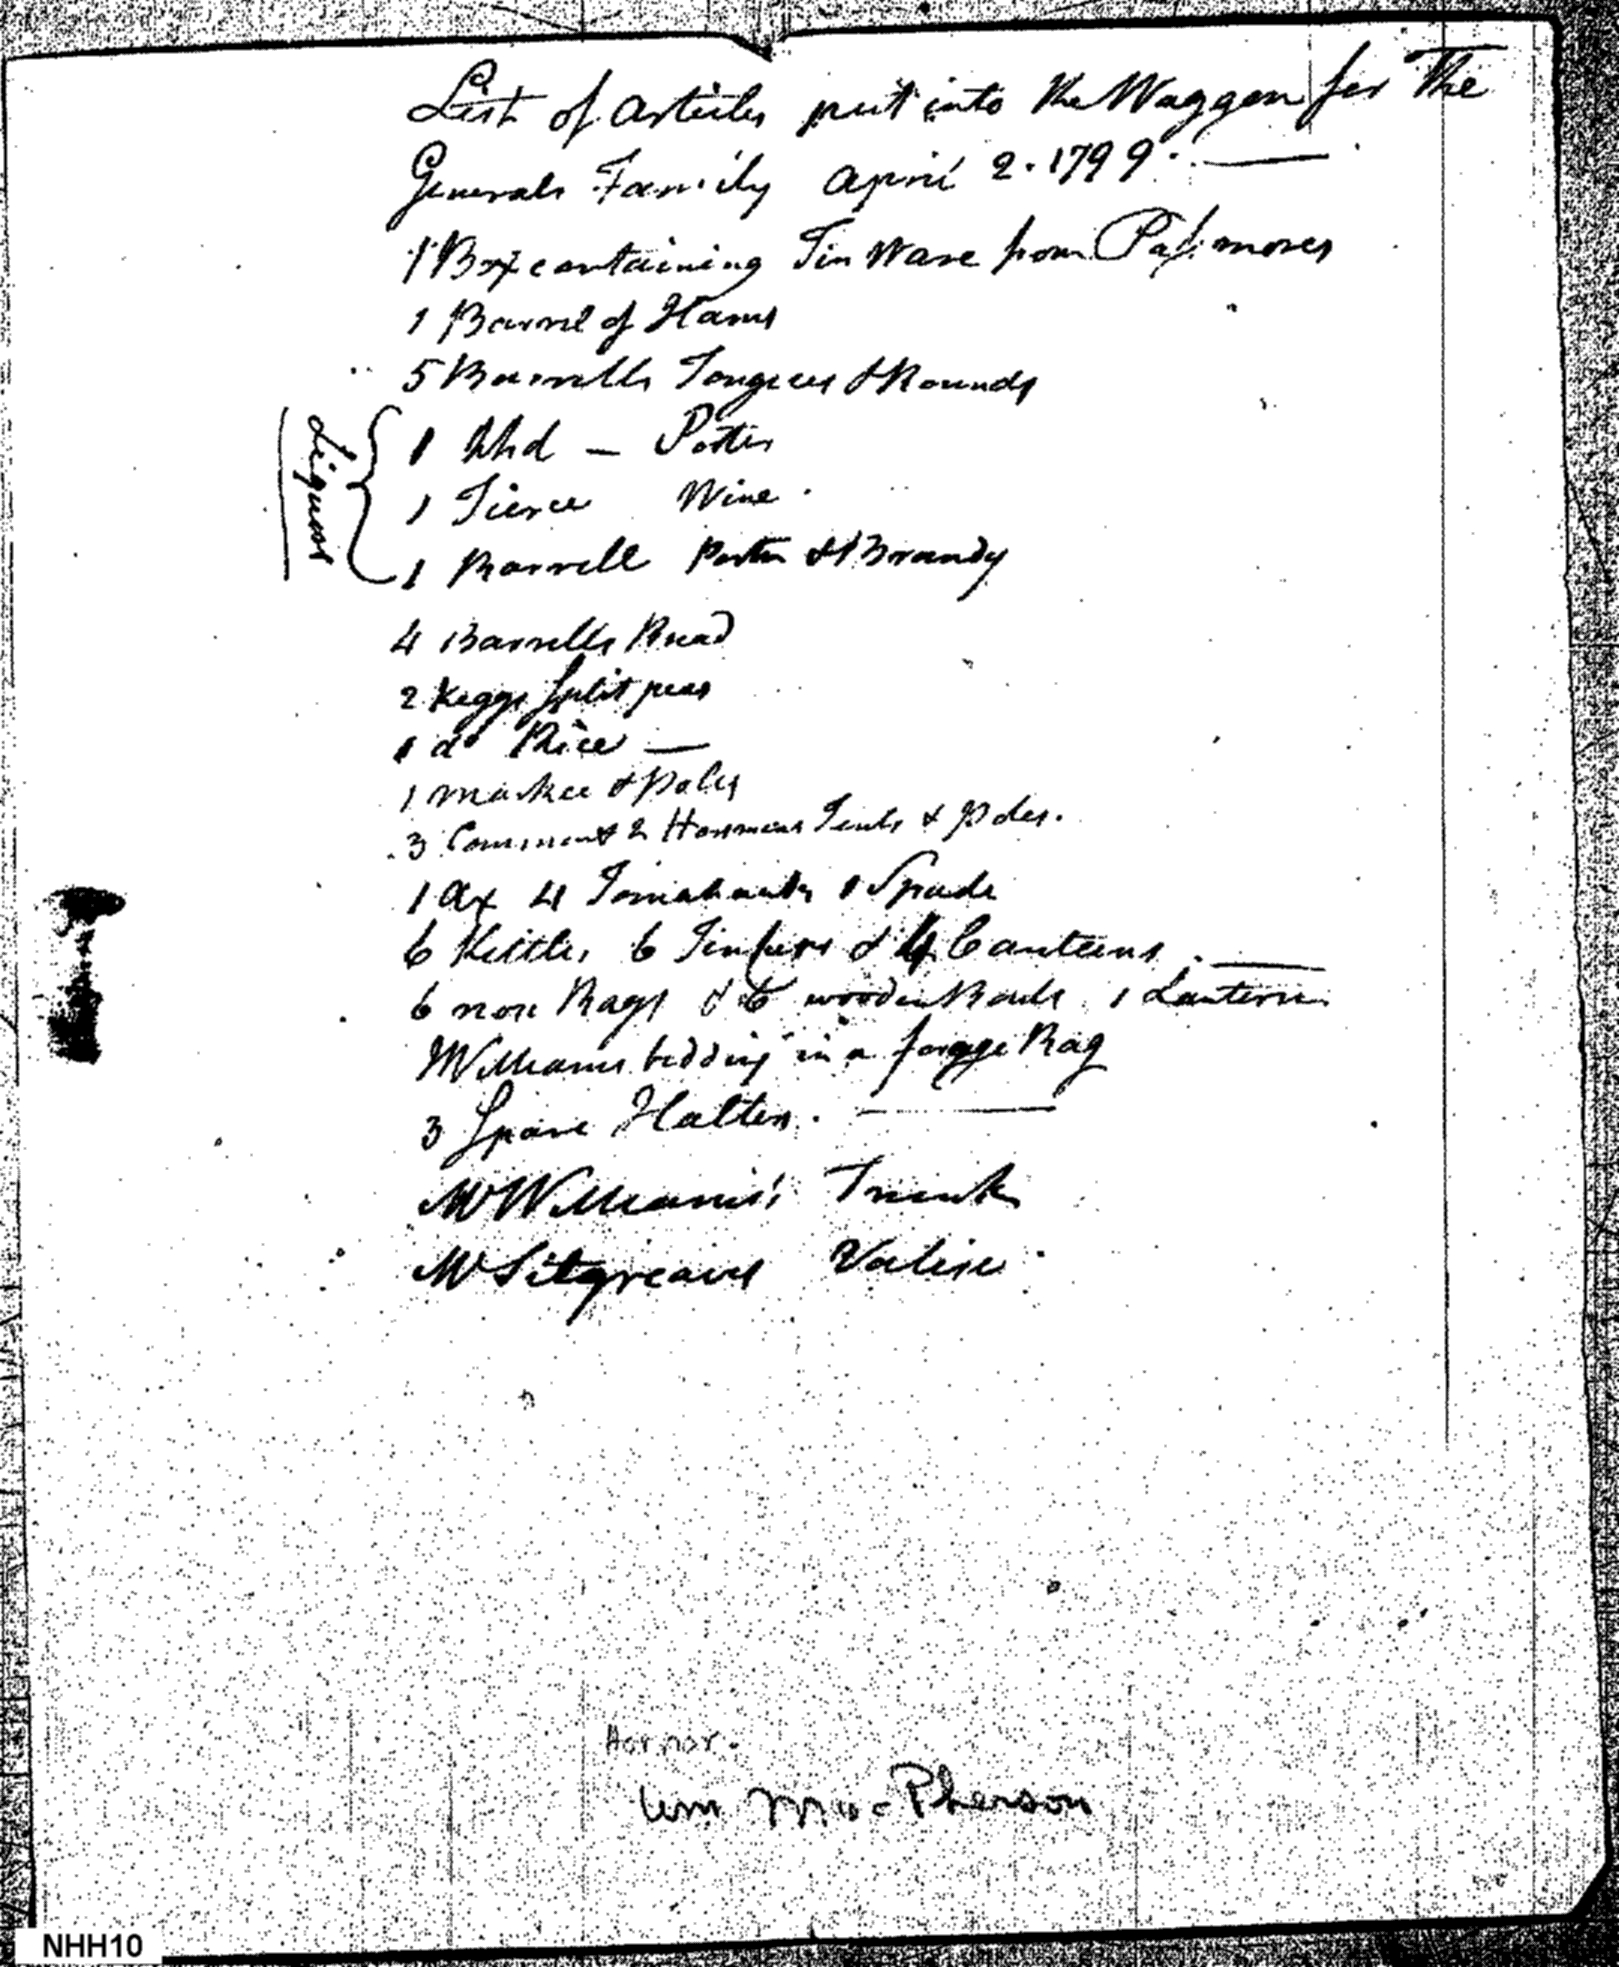 List of Articles put into the Waggon for The
Generals Family April 2. 1799.
1 Box containing Tin Ware from Passmores
1 Barrel of Hams
5 Barrells Tongues & Rounds
Liquor
1 hhd — Porter
1 Tierce Wine
1 Barrell Porter & Brandy
4 Barrells Bread
2 Keggs Split peas
1 do Rice —
1 Markee & Poles
3 Common & 2 Horsmens Tents & Poles.
1 Ax 4 Tomahawks 1 Spade
6 Kettles 6 & 4 Canteens
6 Bags & 6 wooden Bowls 1 Lantern
Williams bedding in a forage Bag
3 Spare Halters.
Mr Williams's Trunk
Mr Sitgreaves Valise
Hornor.
Wm MacPherson
NHH10